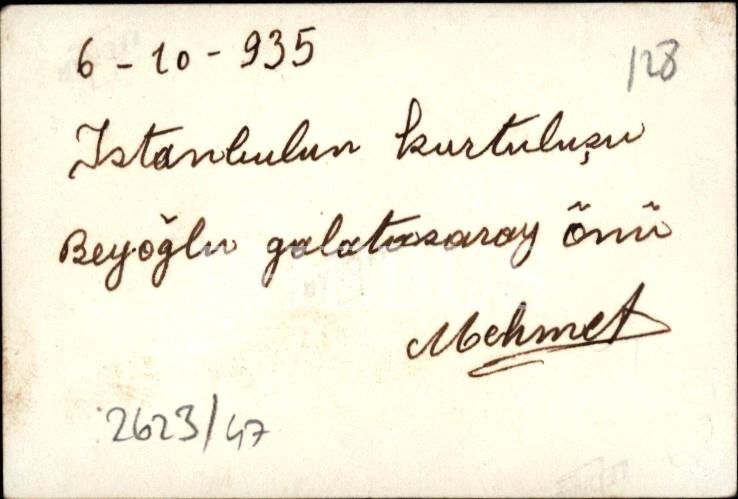 6-10-935
128
Istanbulun kurtuluşu
Beyoğlu galatasaray önü
Mehmet
2623/47